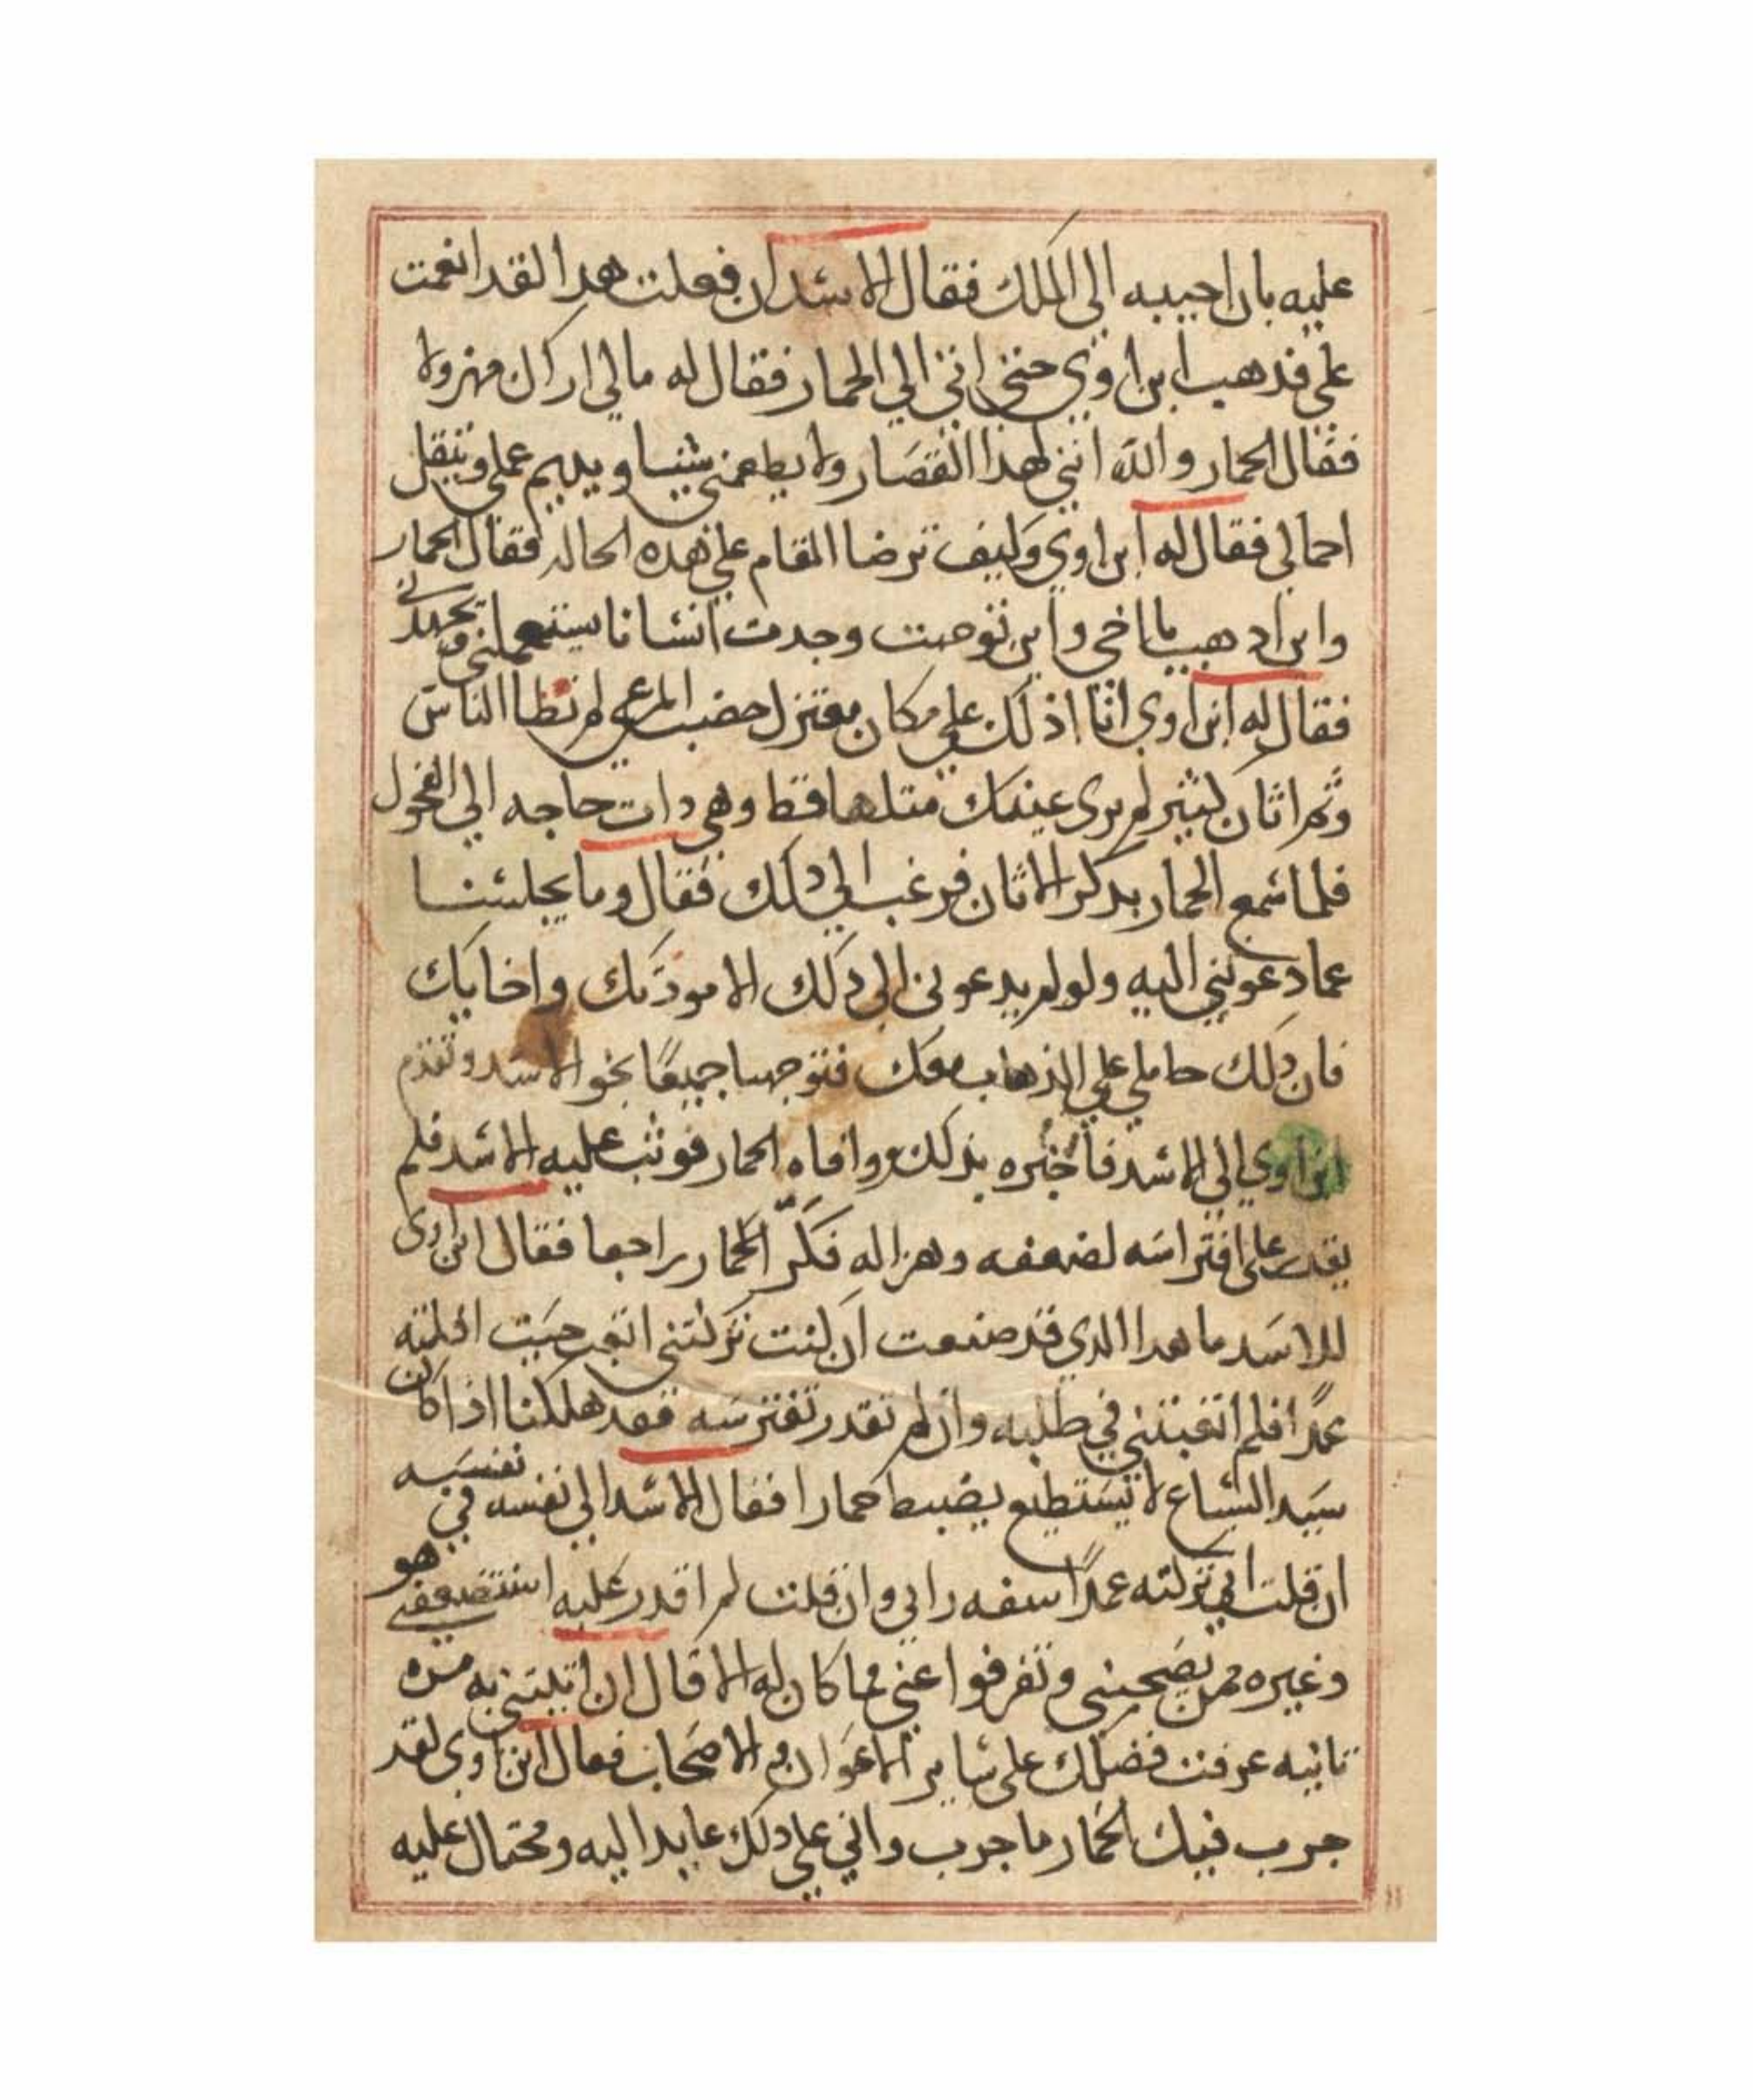 عليه بان احيبه الي الملك فقال الاسد ان فعلت هدا لقد انعمت
علي فدهب ابن اوي حتي اتي الي الحمار فقال له مالي اراك مهزولا
فقال الحمار والله انني لهدا القصار ولا يطعمني شيا ويديم عملي ويثقل
احمالي فقال له ابن اوي وكيف ترضا المقام علي هده الحاله فقال الحمار
واين ادهب يا اخي واين توجهت وجدت انسانا يستعملني ويجهدني
فقال له ابن اوي انا اذلك علي مكان معتزل خصب المرعي لم تطا الناس
وثم اتان لم يرى عينك متلها قط وهي دات حاجه الي الفحول
فلما سمع الحمار بدكر الاتان فرغب الي دلك فقال وما يجلسنا
عما دعوتني اليه ولو لم يدعوني الي دلك الا مودتك واخايك
فان دلك حاملي علي الذهاب معك فتوجها جميعًا نحو الاسد وتقدم
ابن اوي الي الاسد فاخبره بذلك ووافاه الحمار فوثب عليه الاسد فلم
يقدر علي افتراسه لضعفه وهزاله فكرّ الحمار راجعا فقال ابن اوى
للاسد ما هدا الدي قد صنعت ان كنت تركتني اتعب حيت افلته
عمدًا فلم اتعبتني في طلبه وان لم تقدر تفترسه فقد هلكنا اذا كان
سيد السباع لا يستطيع يضبط حمارا فقال الاسد الي نفسه في نفسه
ان قلت اني تركته عمدًا سفه رايي وان قلت لم اقدر عليه استضعفني هو
وغيره ممن يصحبني وتفرقوا عني فما كان له الا قال ان اتيتني به مره
تانيه عرفت فضلك علي ساير الاعوان والاصحاب فقال ابن اوي لقد
جرب فيك الحمار ما جرب واني علي دلك عايدا اليه ومحتال عليه